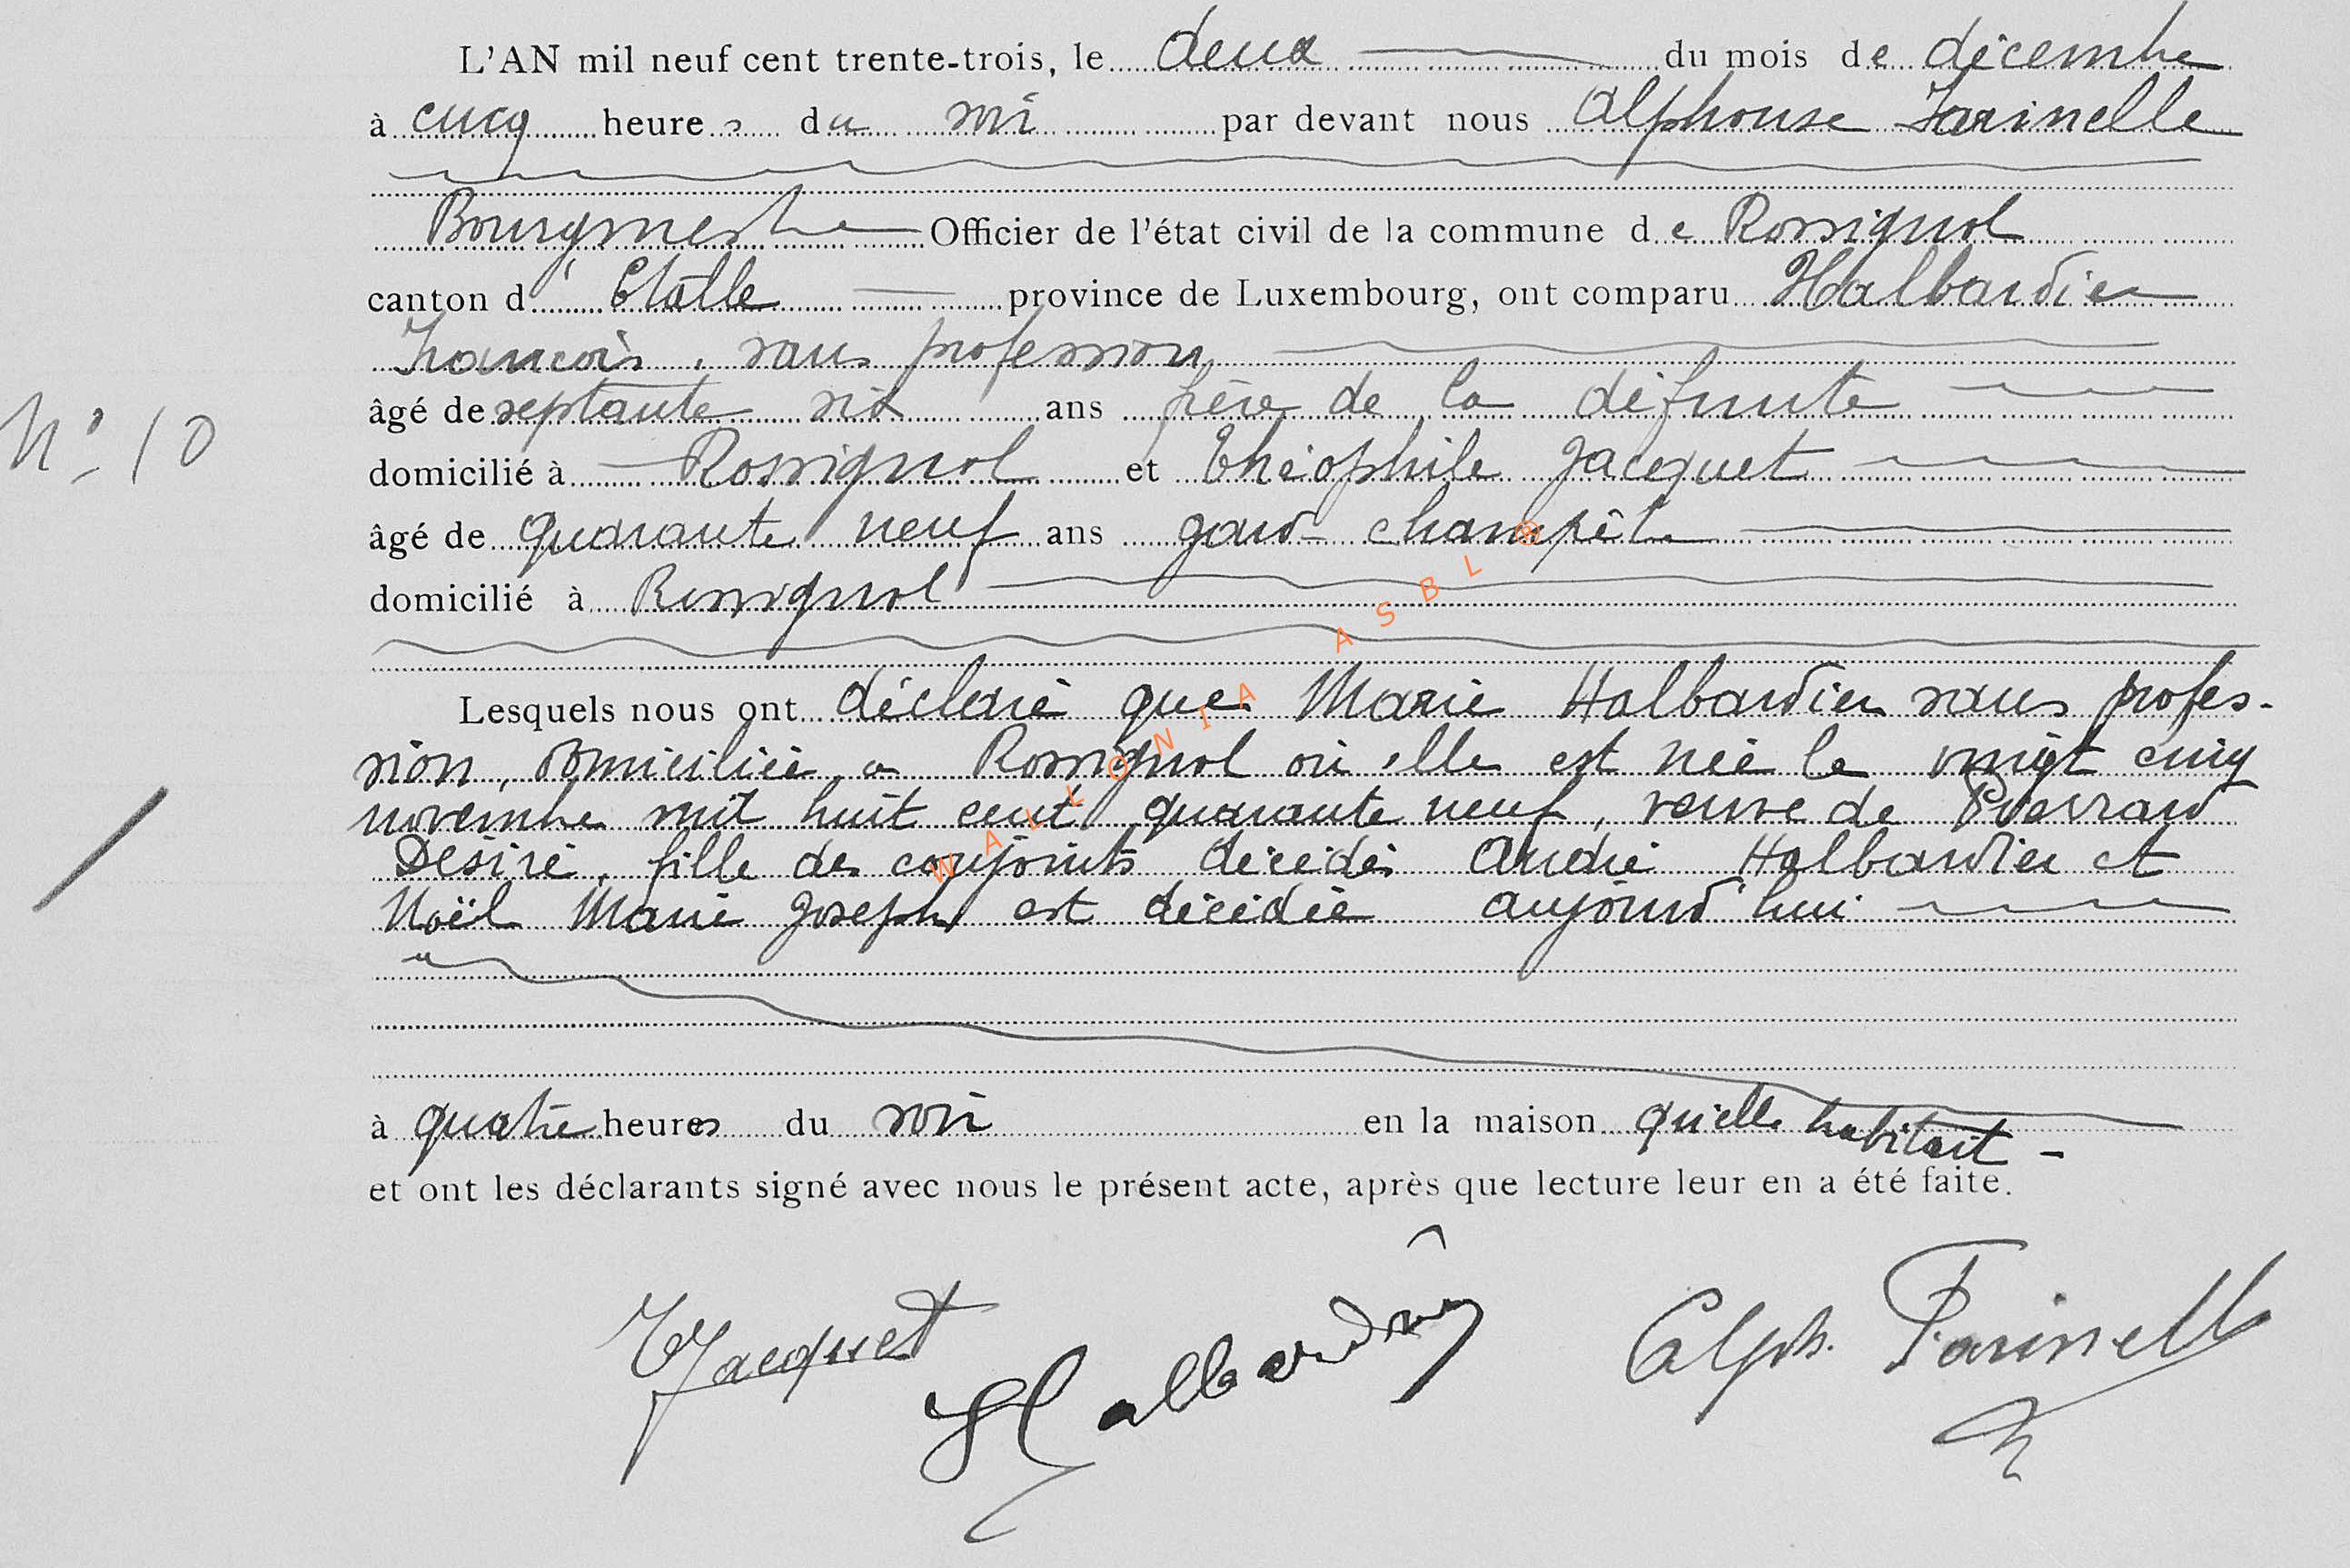 L'AN mil neuf cent trente-trois, le deux du mois de décembre
à cinq heures du soir par devant nous Alphonse Farinelle
Bourgmestre Officier de l'état civil de la commune de Rossignol
canton d'Etalle province de Luxembourg, ont comparu Halbardier
François, sans profession
âgé de septante six ans frère de la défunte
N° 10
domicilié à Rossignol et Théophile Jacquet
âgé de quarante neuf ans gard-champêtre
domicilié à Rossignol
Lesquels nous ont déclaré que Marie Halbardier sans profes-
sion, domiciliée a Rossignol où elle est née le vingt cinq
novembre mil huit cent quarante neuf, veuve de
Désiré, fille des conjoints décédés André Halbardier et
Noël Marie Joseph est décédée aujourd'hui
à quatre heures du soir en la maison qu'elle habitait -
et ont les déclarants signé avec nous le présent acte, après que lecture leur en a été faite.
TJacquet Halbardier Alph. Farinelle
WALLONIA ASBL ®